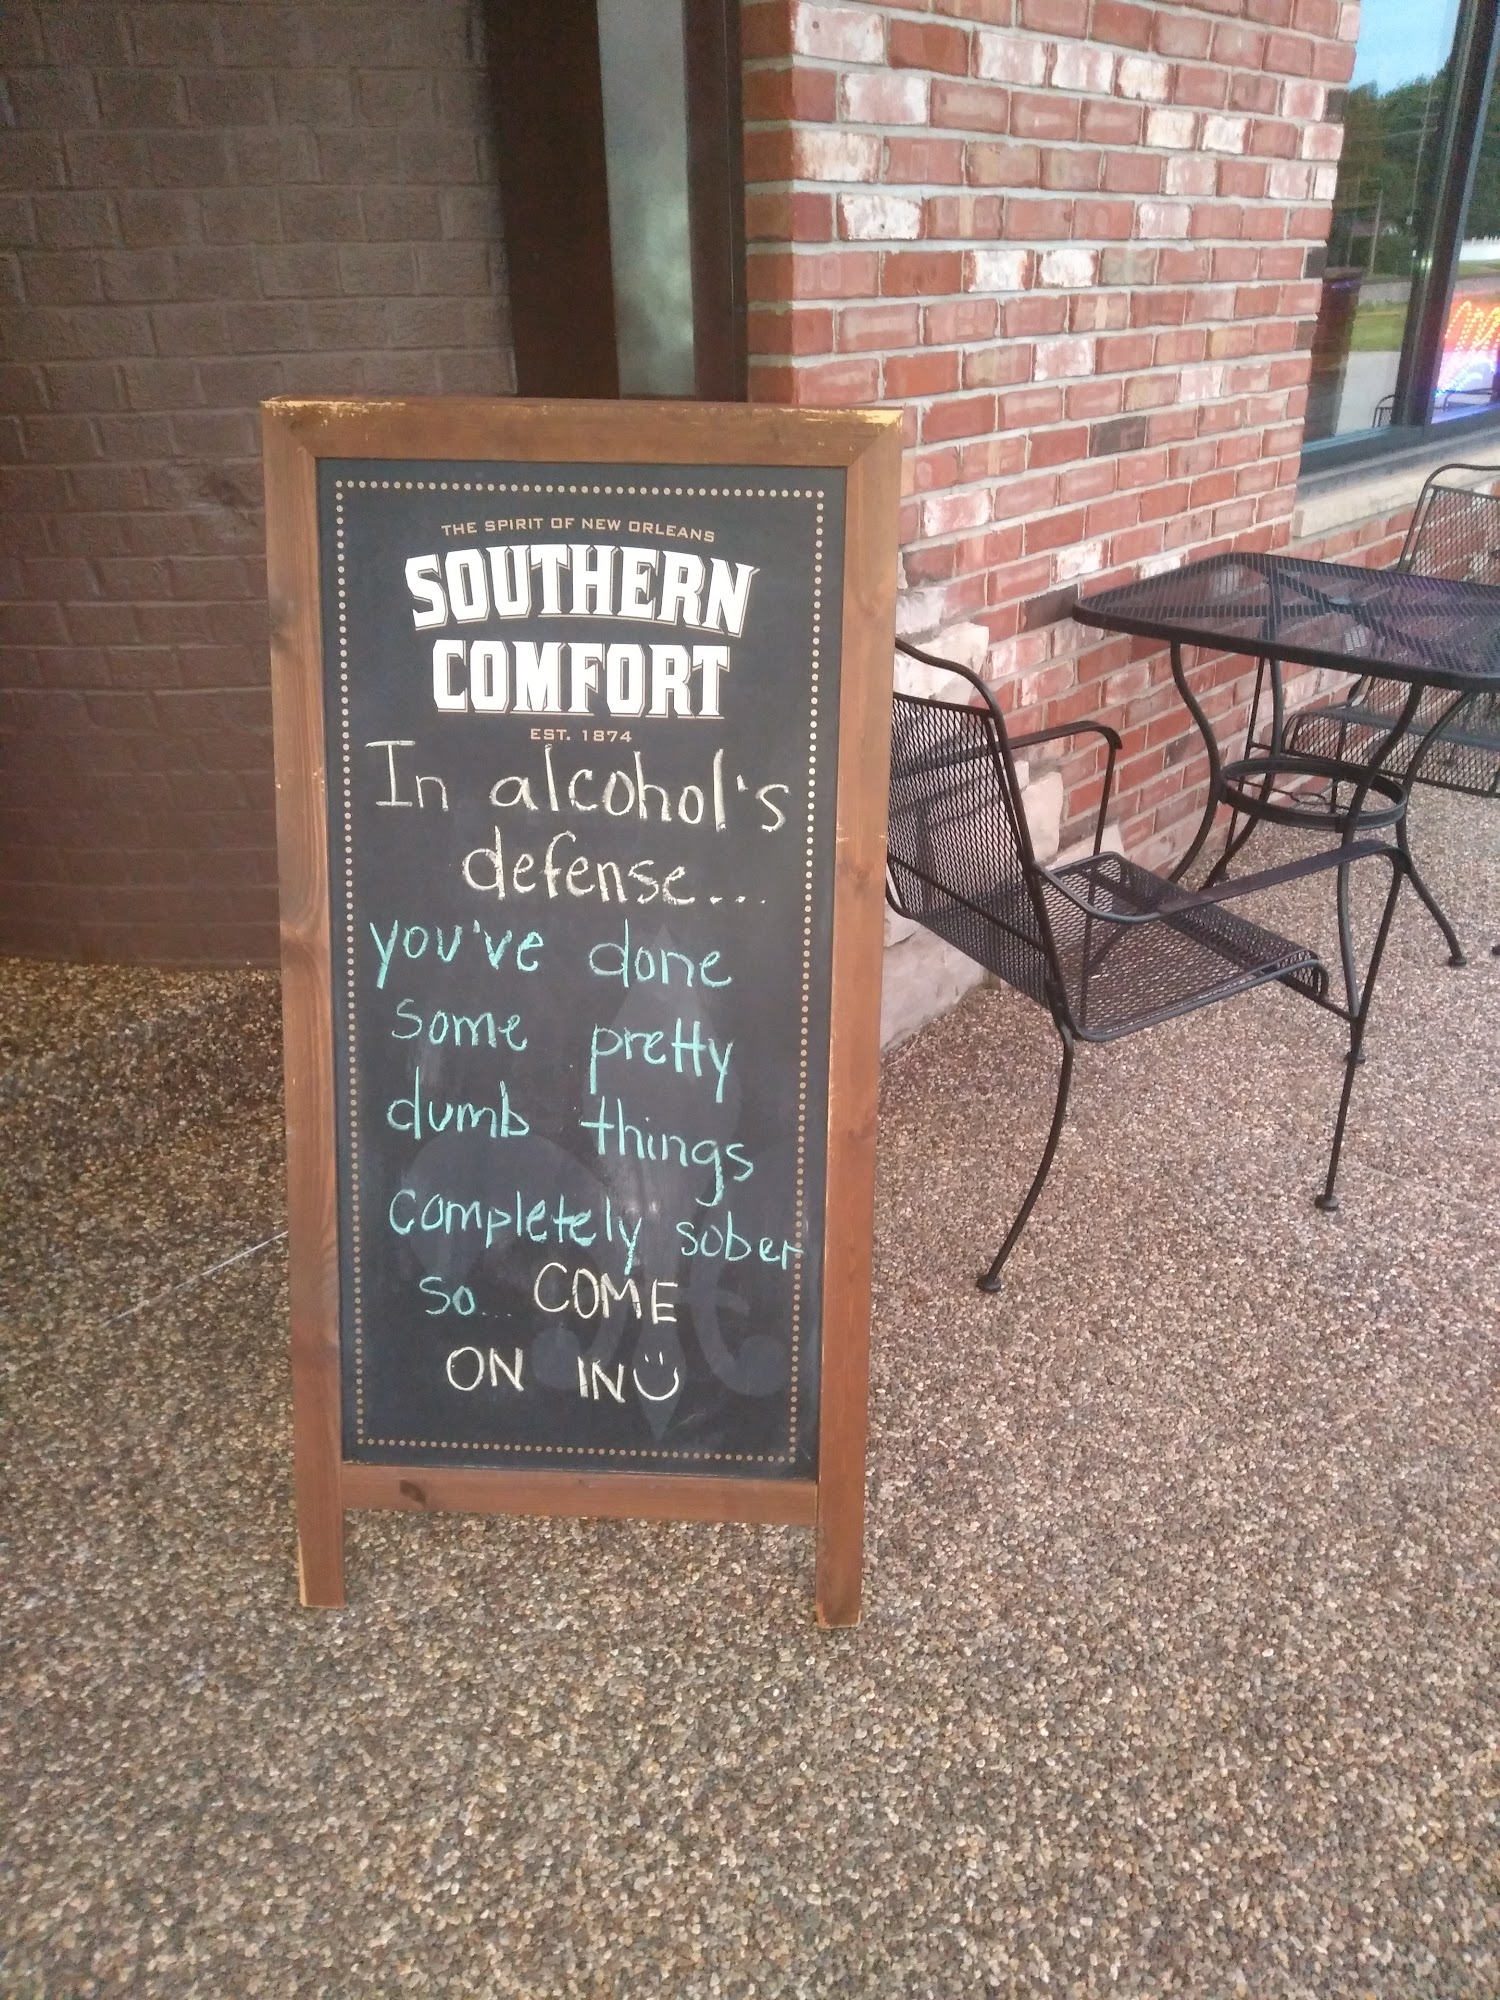 THE SPIRIT OF NEW ORLEANS
SOUTHERN
COMFORT
EST. 1874
In alcohol's
defense...
you've done
some pretty
dumb things
completely sober
so... COME
ON IN